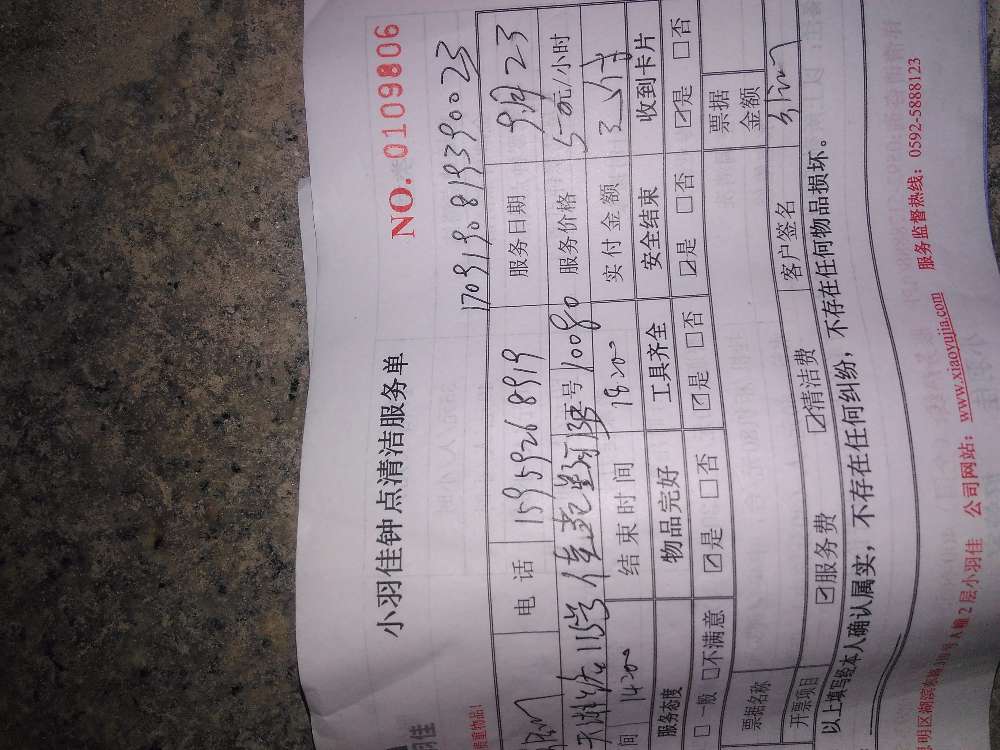 小羽佳钟点清洁服务单
NO. 0109806
1709190819390023
电 话 15959268919 服务日期 9月23
115号 号 10080 服务价格 50元/小时
间 14:00 结束时间 18:00 实付金额
服务态度 物品完好 工具齐全 安全结束 收到卡片
□一般 □不满意 ☑是 □否 ☑是 □否 ☑是 □否 ☑是 □否
票据名称 票据
金额
开票项目 ☑服务费 ☑清洁费 客户签名
以上填写经本人确认属实，不存在任何纠纷，不存在任何物品损坏。
明区湖滨 号A幢2层小羽佳 公司网站：www.xiaoyujia.com 服务监督热线：0592-5888123
羽佳
贵重物品!